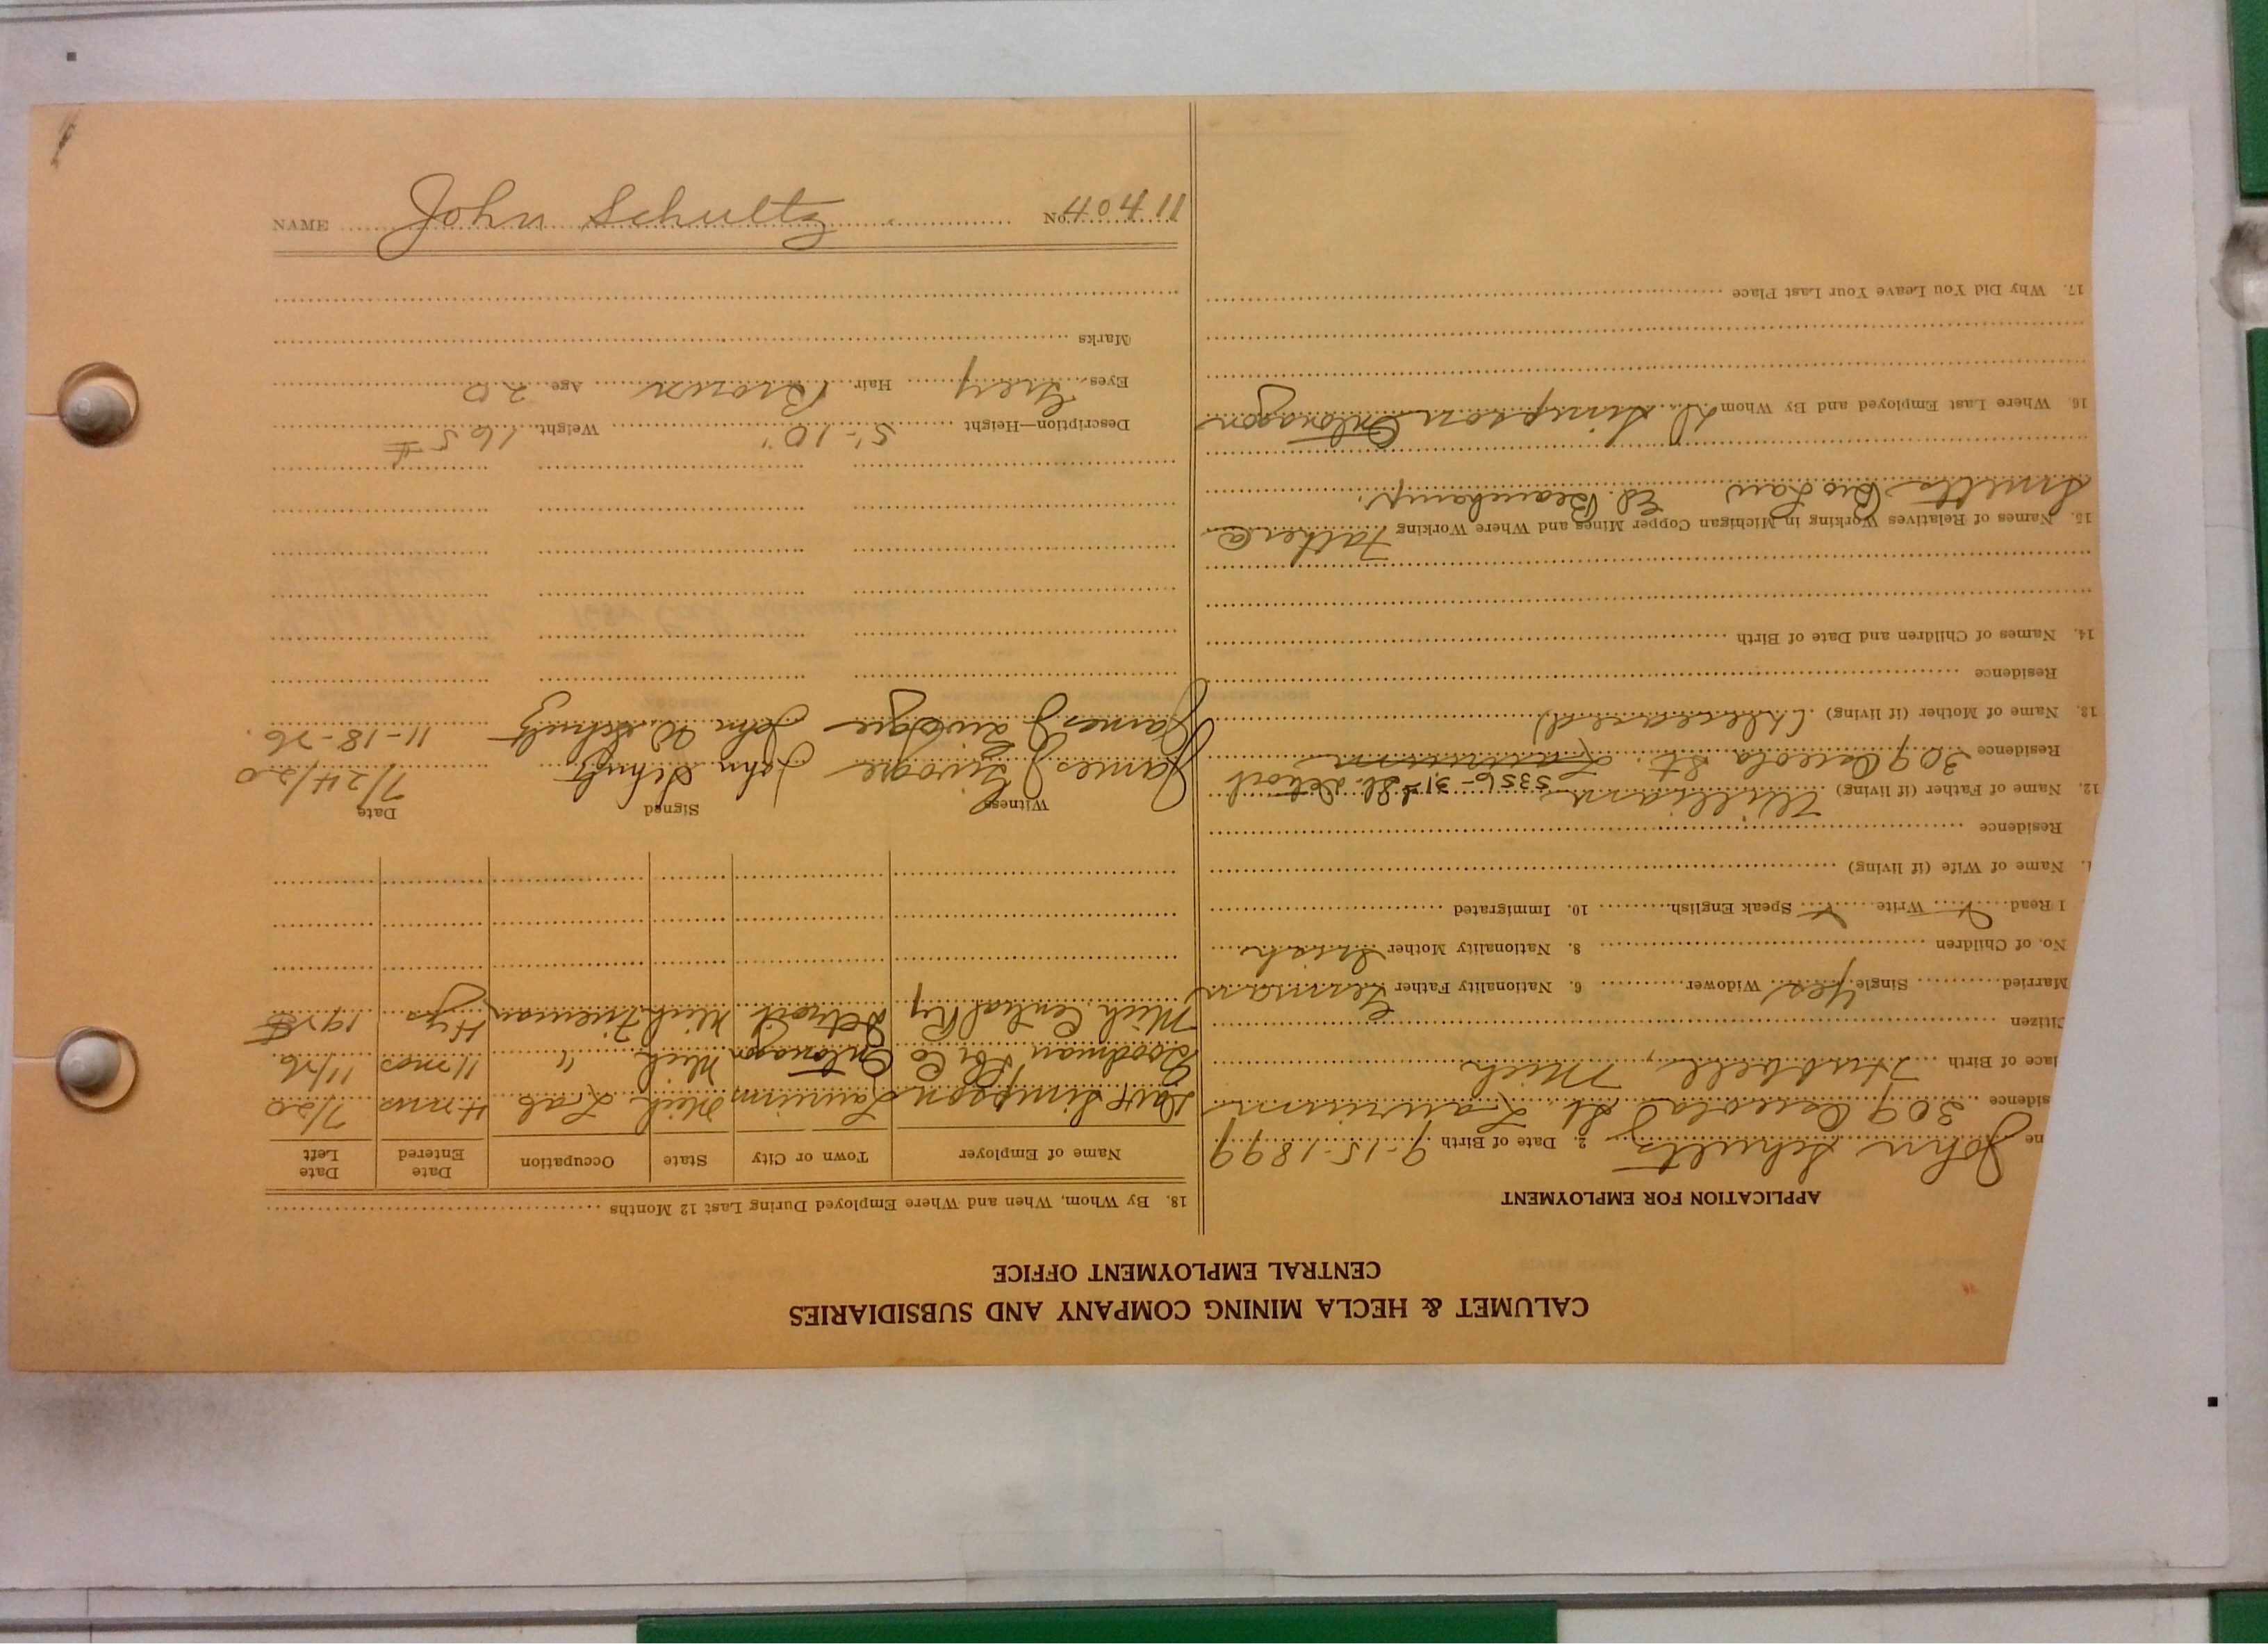 CALUMET & HECLA MINING COMPANY AND SUBSIDIARIES
CENTRAL EMPLOYMENT OFFICE
APPLICATION FOR EMPLOYMENT
me John Schultz 2. Date of Birth 9-15-1899
sidence 309 Osceola St. Laurium
lace of Birth Hubbell, Mich
Citizen
Married Single Yes Widower 6. Nationality Father German
No. of Children 8. Nationality Mother Irish
I Read Write Speak English 10. Immigrated
1. Name of Wife (if living)
Residence
12. Name of Father (if living) William 5356-31st St. Detroit
Residence 309 Osceola St. Laurium
13. Name of Mother (if living) (deceased)
Residence
14. Names of Children and Date of Birth
15. Names of Relatives Working in Michigan Copper Mines and Where Working Father @
Smelter Bro Law Ed. Beauchamp.
16. Where Last Employed and By Whom D. Simpson Ontonagon
17. Why Did You Leave Your Last Place
18. By Whom, When and Where Employed During Last 12 Months
Name of Employer Town or City State Occupation Date Entered Date Left
Dave Simpson Laurium Mich Lab 4 mos 7/20
Goodman Lbr Co Ontonagon Mich " 11 mos 11/26
Mich Central Ry Detroit Mich Fireman 4 yrs
Witness Signed Date
James J Livogie John Schultz 7/24/20
James J Livogie John W Schultz 11-18-26.
Description—Height 5'-10" Weight 165#
Eyes Grey Hair Brown Age 20
Marks
NAME John Schultz No. 40411